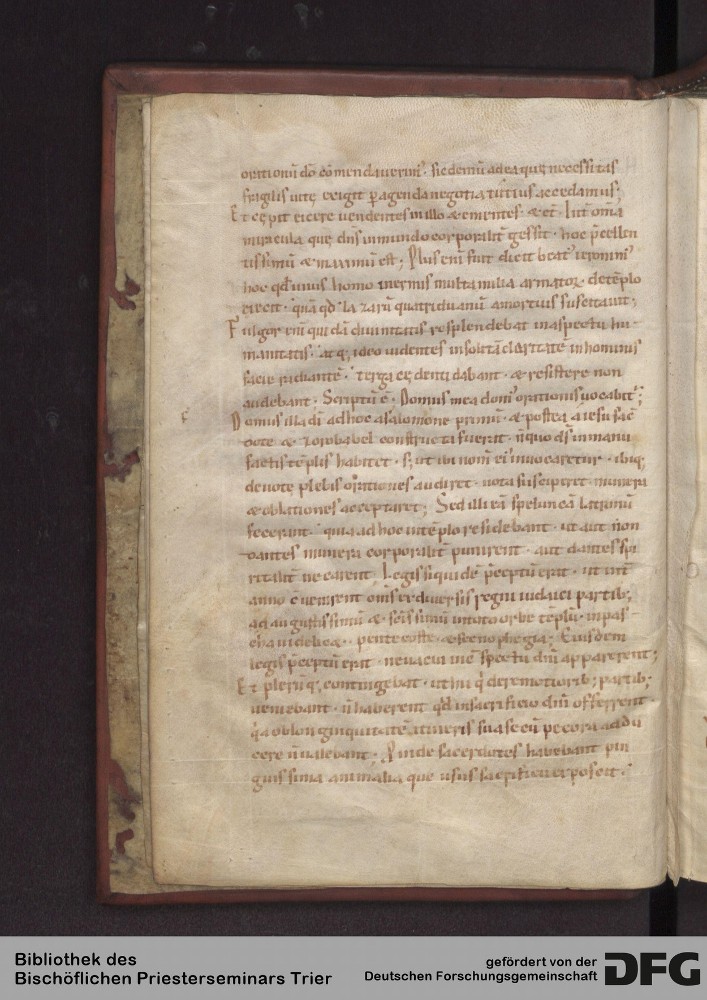 orationū dō cōmendauerim᷒. sic demū ad ea quę necessitas
fragilis uitę exigit ꝑagenda negotia tutius accedamus;
Et cępit eicere uendentes in illo & ementes. & cet̄. Int̄ om̄ia
miracula quę dn̄s in mundo corporalit̄ gessit. hoc p̄cellen
tissimū & maximū est; Plus enī fuit dicit beat᷒ ieronim᷒
hoc qd̄ unus homo inermis multa milia armatoꝝ. de tēplo
eiecit. quā qd̄ lazarū quatriduanū a mortuis suscitauit;
Fulgor enī quidā diuinitatis resplendebat in aspectu hu
manitatis. atq; ideo uidentes insolitā claritatē in hominis
facie radiantē. terga cędenti dabant. & resistere non
audebant. Scriptū ē. Domus mea dom᷒ orationis uocabit᷑;
Domus illa dī ad hoc a salomone primū. & postea a iesu sac̄
dote & zorobabel constructa fuerat. n̄ quo ds̄ in manu
factis tēplis habitet. s; ut ibi nom̄ ei᷒ inuocaretur. ibiq;
deuote plebis orationes audiret. uota susciperet. munera
& oblationes acceptaret; Sed illi eā speluncā latronū
fecerant. quia ad hoc in tēplo residebant. ut aut non
dantes munera corporalit̄ punirent. aut dantes spi
ritalit̄ necarent. Legis siquidē p̄ceptū erat. ut int̄
anno ē uenirent om̄s ex diuersis regni iudaici partib;
ad augustissimū & sc̄issimū in toto orbe tēplū. in pas
cha uidelic&. pentecoste. & scenophegia; Eiusdem
legis p̄ceptū erat. ne uacui in c̄spectu dn̄i apparerent;
Et plerūq; contingebat. ut hi q̇ de remotiorib; partib;
ueniebant. n̄ haberent qd̄ in sacrificio dn̄i offerrent
q̇a ob longinquitatē itineris sua secū pecora addu
cere n̄ ualebant. Proinde sacerdotes habebant pin
guissima animalia que usus sacrificii exposcit.
Bibliothek des
Bischöflichen Priesterseminars Trier
gefördert von der
Deutschen Forschungsgemeinschaft DFG